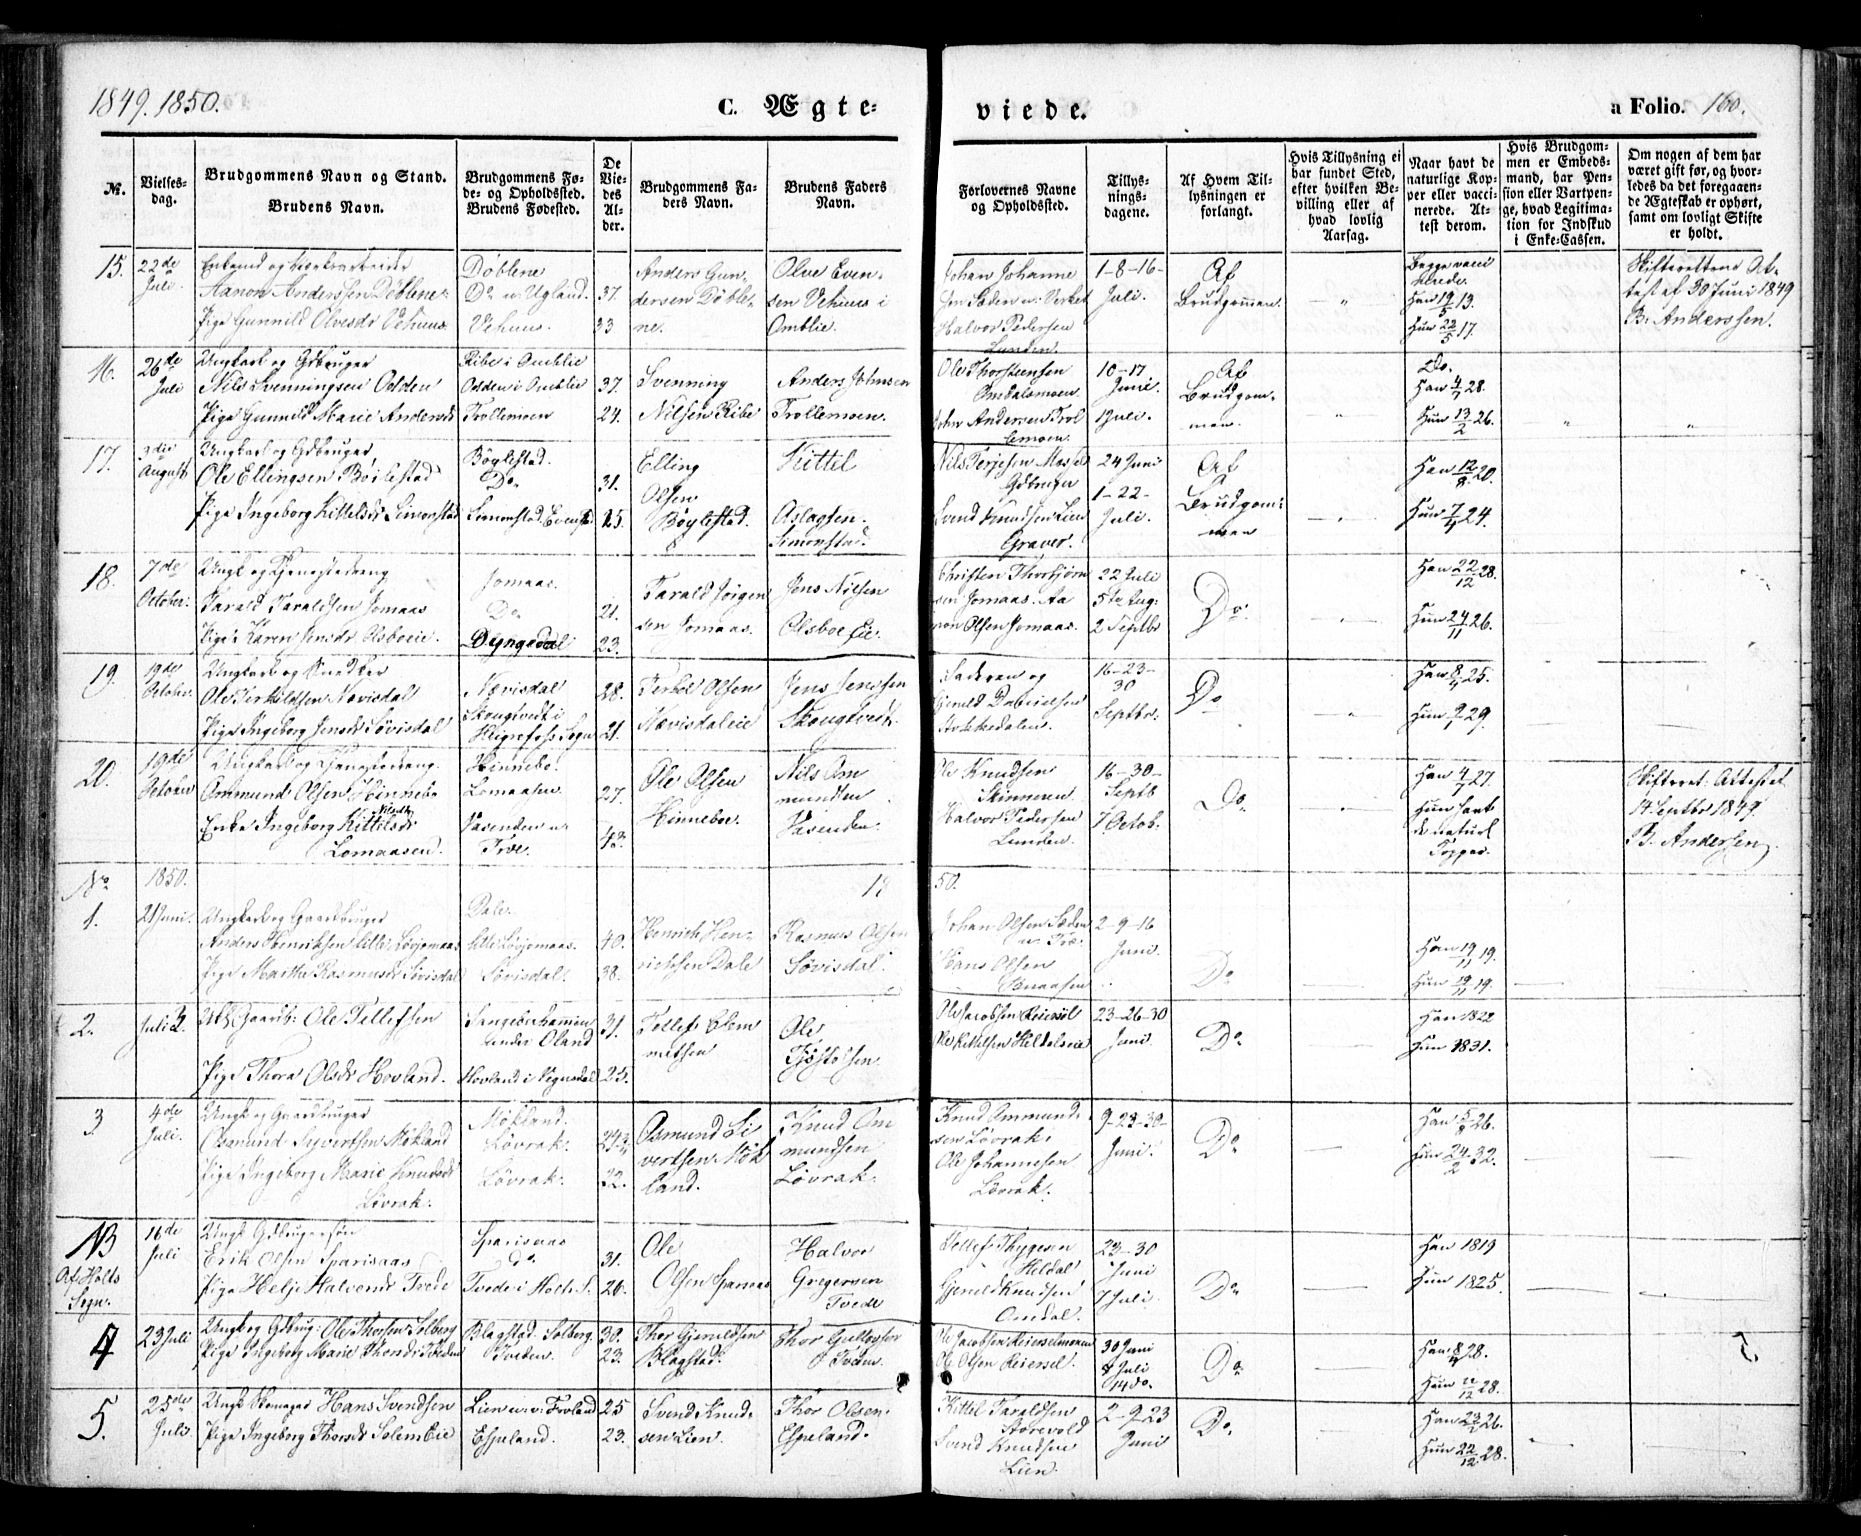 1849. 1850.
C. Ægte-
viede.
a Folio. 160.
№.
Vielses-
dag.
Brudgommens Navn og Stand.
Brudens Navn.
Brudgommens Fø-
de- og Opholdssted.
Brudens Fødested.
De
Vie-
des
Al-
der.
Brudgommens Fa-
ders Navn.
Brudens Faders
Navn.
Forlovernes Navne
og Opholdssted.
Tillys-
nings-
dagene.
Af Hvem Til-
lysningen er
forlangt.
Hvis Tillysning ei
har fundet Sted,
efter hvilken Be-
villing eller af
hvad lovlig
Aarsag.
Naar havt de
naturlige Kop-
per eller vacci-
nerede. At-
test derom.
Hvis Brudgom-
men er Embeds-
mand, har Pen-
sion eller Vartpen-
ge, hvad Legitima-
tion for Indskud
i Enke-Cassen.
Om nogen af dem har
været gift før, og hvor-
ledes da det foregaaen-
de Ægteskab er ophørt,
samt om lovligt Skifte
er holdt.
15. 22de Juli.
Aanon Anderssen Døblene
Pige Gunnild Olvesdr Vehuus
Døblene
Do n. Ugland. 37.
Vehuus. 23
Anders Gun-
dersen Døble-
ne.
Olve Even-
sen Vehuus i
Omblie.
Halvor Pedersen
Lunden.
1-8-16-
Juli.
Af
Brudgommen.
Han 19/5 13.
Hun 22/5 17.
Skifterettens At-
test af 30 Juni 1849
B. Anderssen.
16. 26de Juli
Ungkarl og Gdbruger
Nils Svenningsen Osden
Pige Gunnild Marie Andersdr
Ribe i Omblie
Osden i Omblie 37.
Trollemoen 24.
Svenning
Nilsen Ribe
Anders Johnsen
Trollemoen.
Ole Thorsteensen
Omdalsmoen
John Andersen Trol
lemoen.
10-17
Juni.
1 Juli.
Af
Brudgom-
men.
Do.
Han 4/7 28.
Hun 13/2 26.
17. 3die August
Ungkarl og Gdbruger
Ole Ellingsen Bøilestad
Pige Ingeborg Kittelsdr Simonstad
Bøylestad.
Do. 31.
Simonstad. 25.
Elling
Olsen
Bøylestad.
Kittel
Aslagsen.
Simonstad.
Nils Terjesen
Gdbruger
Svend Knudsen Lien
Graver.
24 Juni
1-22-
Juli.
Af
Brudgom-
men
Han 12/8 20.
Hun 7/4 24.
18. 7de October.
Ungk og Tjenestedreng
Tarald Taraldsen Jomaas
Pige Karen Jensdr Olsboeie.
Jomaas.
Do 21.
Dyngedal 23.
Tarald Jørgen
sen Jomaas.
Jens Nilsen
Olsboe Eie.
Christen Thorbjørn
sen Jomaas. Aa
non Olsen Jomaas.
22 Juli
5te Aug:
2 Septbr
Do.
Han 22/12 28.
Hun 24/11 26.
19. 19de October
Ungkarl og Snedker
Ole Terkildsen Nævisdal
Pige Ingeborg Jensdr Søvisdal
Nævisdal 28.
Skougtvedt i
Heigrefoss Sogn 21.
Olsen
Nævisdaleie
Jens Jenssen
Skougtvedt.
16-23-
30
Septbr.
Do
Han 8/4 25.
Hun 9/7 29.
20. 19de October
Ungkarl og Tjenestedreng.
Ommund Olsen Hinnebo
Enke Ingeborg Kittelsdr
Lomaasen.
Hinnebo.
Lomaasen 27.
Vasenden n.
Froe. 43.
Ole Olsen
Hinneboe
Nils Om
mundsen
Vasenden.
Ole Knudsen
Skinneren
Halvor Pedersen
Lunden
16-30-
Septb
7 Octob.
Do
Han 4/7 27.
Hun havt
de naturl
Kopper.
Skifteret: Attestat
14 Septbr 1849.
B. Andersen.
No 1850. 18 50.
1. 21 Juni.
Ungkarl og Gaardbruger
Anders Henriksen Lille Lørjomaas
Pige Marthe Rasmusdr Søvisdal
Dale
Lille Lørjomaas. 40.
Søvisdal. 38.
Henrich Hen-
richsen Dale
Rasmus Olsen
Søvisdal
Hans Olsen
2-9-16
Juni.
Do
Han 19/11 19.
Hun 19/11 19.
2. Juli 2.
Ole Tellefsen
Pige Thora Olsdr Hovland.
under Oland 31.
Hovland i Vegusdal 25.
Tellef Clem
metsen
Ole
Tjøstolsen
Ole Jacobsen Reiersøl
Ole Kittelsen Heldalseie
23-26-30
Juni
Do
Han 1822
Hun 1831.
3. 4de Juli.
Ungk og Gaardbruger
Osmund Syvertsen Møkland
Pige Ingeborg Marie Knudsdr
Løvrak.
Møkland.
Løvrak.
Løvrak. 32.
Osmund Si
vertsen Møk
land.
Knud Om
mundsen
Løvrak.
Knud Ommund-
sen Løvrak.
Ole Johannesen
Løvrak.
9-23-30-
Juni.
Do
Han 5/8 26.
Hun 24/2 32.
NB
Af Holts
Sogn.
16de Juli
Ungk Gdbrugersøn
Erik Olsen Sparisaas
Pige Helje Halvorsdr Tvede
Sparisaas
do 31.
Tvede i Holts S. 26.
Ole
Olsen Sparsaas
Halvor
Gregersen
Tvede
Tellef Thygesen
Heldal
Gjeruld Knudsen
Omdal.
23-30
Juni
7 Juli.
Do
Han 1819
Hun 1825.
4 23 Juli
Ungk og Gdbrug: Ole Thorsen Solberg
Pige Ingeborg Marie Thorsdr Tveden
Blagstad. Solberg. 30.
Tveden. 23.
Thor Gjeruldsen
Blagstad.
Tveden.
Ole Jacobsen Reierselmoen
Ole Olsen Reiersel.
30 Juni
7 Juli
14 do.
Do
Han 8/4 28.
Hun 22/12 28.
5. 25de Juli
Ungk Skomager Hans Svendsen
Pige Ingeborg Thorsdr Solem Eie
Lien u. v. Froland 25
Espeland. 23.
Svend Knud-
sen Lien.
Thor Olsen.
Espeland.
Kittel Taraldsen
Storevold
Svend Knudsen
Lien.
2-9-23
Juni
Do.
Han 23/1 26.
Hun 22/12 28.